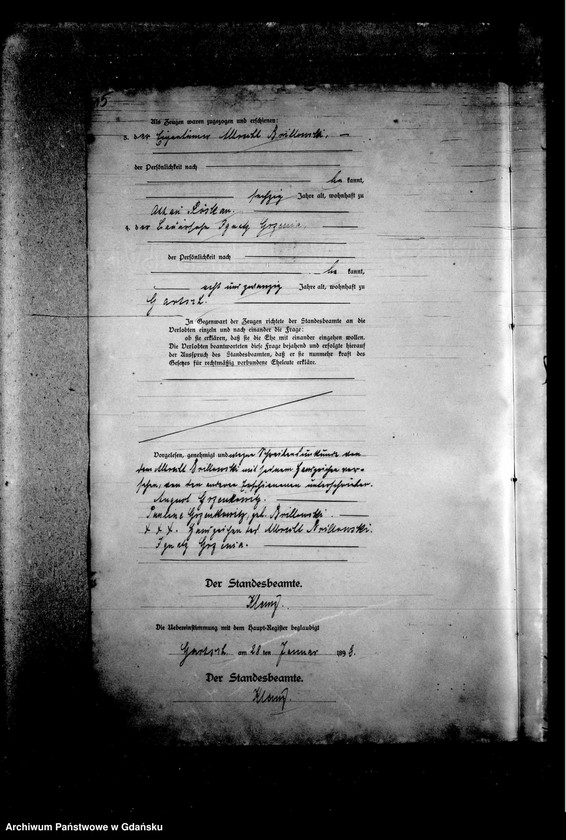 Als Zeugen waren zugezogen und erschienen:
3. der Eigentümer Albrecht Brillowski,
der Persönlichkeit nach
be kannt,
sechzig Jahre alt, wohnhaft zu
4. der Ignatz Grzenia
der Persönlichkeit nach
be kannt,
acht und zwanzig Jahre alt, wohnhaft zu
Gartsch.
In Gegenwart der Zeugen richtete der Standesbeamte an die
Verlobten einzeln und nach einander die Frage:
ob sie erklären, daß sie die Ehe mit einander eingehen wollen.
Die Verlobten beantworteten diese Frage bejahend und erfolgte hierauf
der Ausspruch des Standesbeamten, daß er sie nunmehr kraft des
Gesetzes für rechtmäßig verbundene Eheleute erkläre.
Vorgelesen, genehmigt und wegen Schreibensunkunde von
dem Albrecht Brillowski mit seinem Handzeichen ver-
sehen, von den anderen Erschienenen unterschrieben.
August Grzenkowitz.
Pauline Grzenkowitz, geb. Brillowski.
+ + +. Handzeichen des Albrecht Brillowski.
Ignatz Grzenia.
Der Standesbeamte.
Die Uebereinstimmung mit dem Haupt-Register beglaubigt
Gartsch. am 28 ten Januar 1898.
Der Standesbeamte.
Archiwum Państwowe w Gdańsku